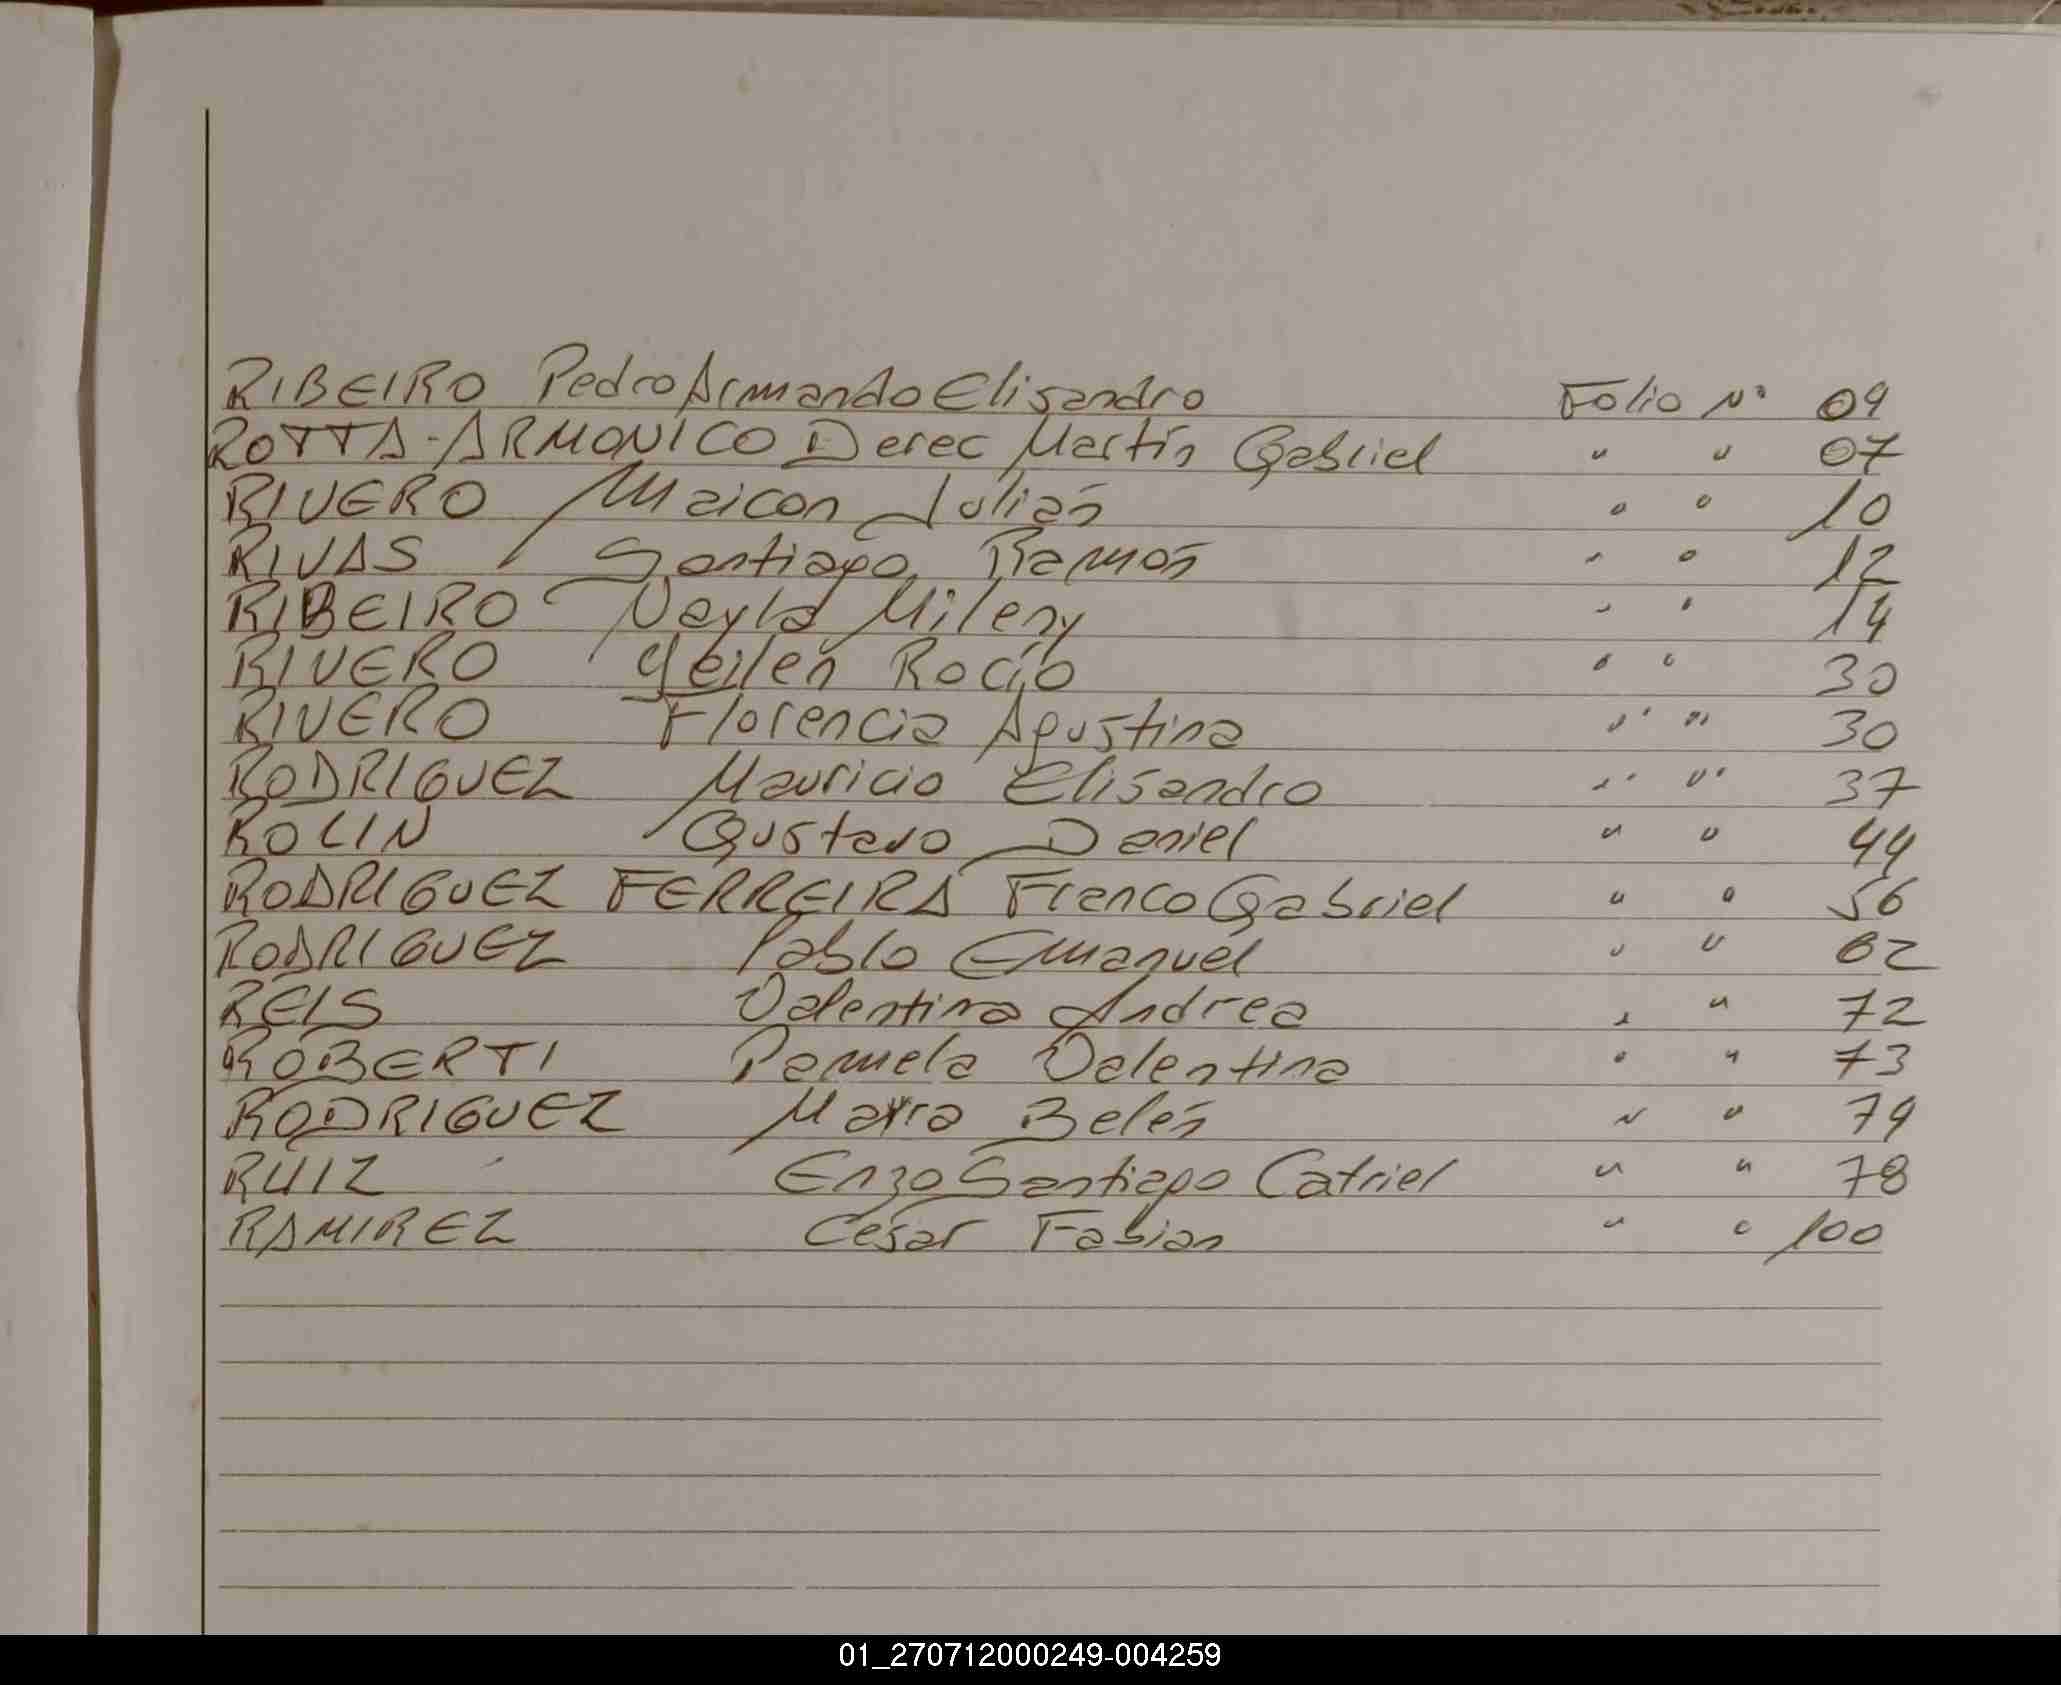 RIBEIRO Pedro Armando Elisandro Folio Nº 09
ROTTA-ARMONICO Derec Martín Gabriel " " 07
RIVERO Maicon Julián " " 10
RIVAS Santiago Ramón " " 12
RIBEIRO Nayla Mileny " " 14
RIVERO Yeilen Rocío " " 30
RIVERO Florencia Agustina " " 30
RODRIGUEZ Mauricio Elisandro " " 37
ROLIN Gustavo Daniel " " 44
RODRIGUEZ FERREIRA Franco Gabriel " " 56
RODRIGUEZ Pablo Emanuel " " 62
REIS Valentina Andrea " " 72
ROBERTI Pamela Valentina " " 73
RODRIGUEZ Belén " " 79
RUIZ Enzo Santiago Catriel " " 78
RAMIREZ César Fabian " " 100
01_270712000249-004259